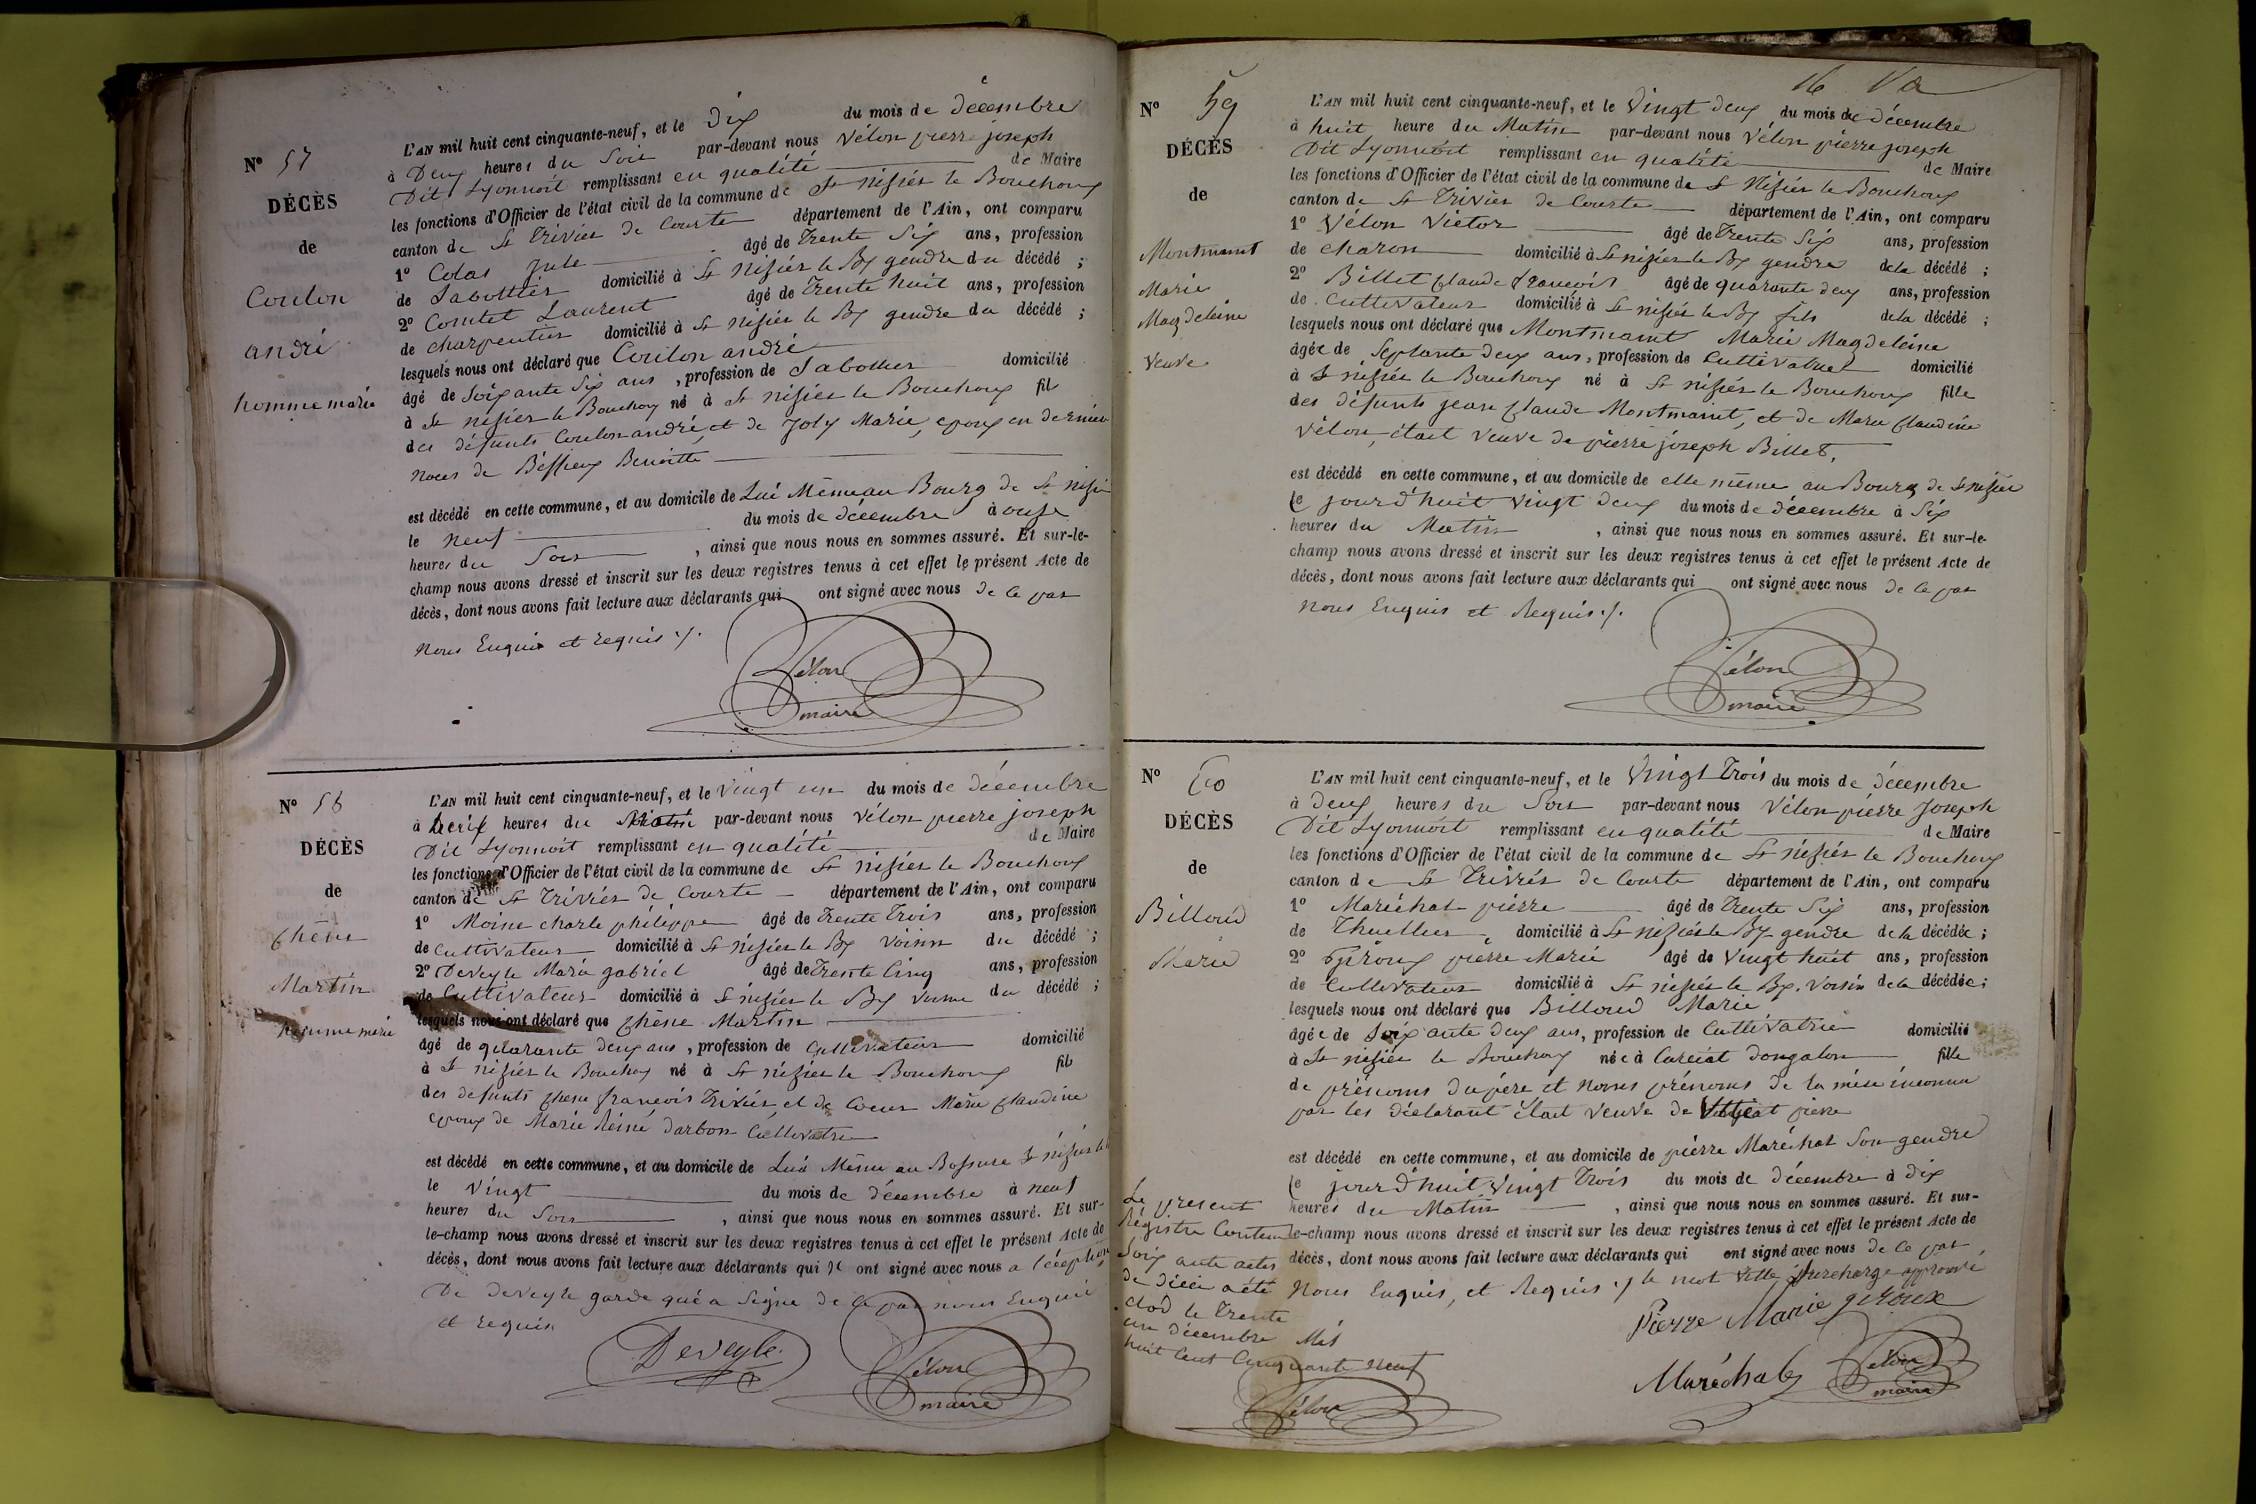 N° 57
DÉCÈS
de
Coulon
andré
homme marié
L'AN mil huit cent cinquante-neuf, et le dix du mois de décembre
à Deux heures du Soir par-devant nous Vélon pierre joseph
Dit Lyonnoit remplissant en qualité de Maire
les fonctions d'Officier de l'état civil de la commune de St nisier le Bouchoux
canton de St Trivier de Courte département de l'Ain, ont comparu
1° Colas Jule âgé de Trente Six ans, profession
de Sabottier domicilié à St nisier le Bx gendre du décédé ;
2° Comtet Laurent âgé de Trente huit ans, profession
de charpentier domicilié à St nisier le Bx gendre du décédé ;
lesquels nous ont déclaré que Coulon andré
âgé de Soixante Six ans, profession de Sabottier domicilié
à St nisier le Bouchoux né à St nisier le Bouchoux fils
des défunts Coulon andré, et de Joly Marie, epoux en dernier
noces de Béssieux Benoitte
est décédé en cette commune, et au domicile de Lui Même au Bourg de St nisier
le neuf du mois de décembre à onze
heures du Soir, ainsi que nous nous en sommes assuré. Et sur-le-
champ nous avons dressé et inscrit sur les deux registres tenus à cet effet le présent Acte de
décès, dont nous avons fait lecture aux déclarants qui ont signé avec nous de ce par
nous Enquis et requis ./.
Vélon
maire
N° 58
DÉCÈS
de
Chêne
Martin
homme marié
L'AN mil huit cent cinquante-neuf, et le Vingt un du mois de décembre
à heures du Matin par-devant nous Vélon pierre joseph
Dit Lyonnoit remplissant en qualité de Maire
les fonctions d'Officier de l'état civil de la commune de St nisier le Bouchoux
canton de St Triviér de Courte département de l'Ain, ont comparu
1° Moine charle philippe âgé de Trente Trois ans, profession
de Cultivateur domicilié à St nisier le Bx Voisin du décédé ;
2° Deveyle Marie gabriel âgé de Trente Cinq ans, profession
de Cultivateur domicilié à St nisier le Bx Voisin du décédé ;
lesquels nous ont déclaré que Chêne Martin
âgé de quarante deux ans, profession de Cultivateur domicilié
à St nisier le Bouchoux né à St nisier le Bouchoux fils
des defunts Chene françois Triviér et de Coeur Marie Claudine
epoux de Marie Reine Darbon Cultivatrice
est décédé en cette commune, et au domicile de Lui Même au St nisier le
le Vingt du mois de décembre à neuf
heures du Soir, ainsi que nous nous en sommes assuré. Et sur-
le-champ nous avons dressé et inscrit sur les deux registres tenus à cet effet le présent Acte de
décès, dont nous avons fait lecture aux déclarants qui ont signé avec nous a l'éception
De deveyle gabriel qui a Signé de ce par nous Enquis
et requis
Deveyle
Vélon
maire
16
N° 59
DÉCÈS
de
Montmarnt
Marie
Magdeleine
Veuve
L'AN mil huit cent cinquante-neuf, et le Vingt deux du mois de décembre
à huit heure du Matin par-devant nous Vélon pierre joseph
Dit Lyonnoit remplissant en qualité de Maire
les fonctions d'Officier de l'état civil de la commune de St Nisier le Bouchoux
canton de St Trivier de Courte département de l'Ain, ont comparu
1° Vélon Victor âgé de Trente Six ans, profession
de charon domicilié à St nisier le Bx gendre de la décédé ;
2° Billet Claude françois âgé de quarante deux ans, profession
de Cultivateur domicilié à St nisier le Bx fils de la décédé ;
lesquels nous ont déclaré que Montmarnt Marie Magdeleine
âgée de Septante deux ans, profession de domicilié
à St nisier le Bouchoux né à St nisier le Bouchoux fille
des défunts jean Claude Montmarnt, et de Marie Claudine
Vélon, était Veuve de pierre joseph Billet,
est décédé en cette commune, et au domicile de elle même au Bourg de St nisier
le jourd'huit Vingt deux du mois de décembre à Six
heures du Matin, ainsi que nous nous en sommes assuré. Et sur-le-
champ nous avons dressé et inscrit sur les deux registres tenus à cet effet le présent Acte de
décès, dont nous avons fait lecture aux déclarants qui ont signé avec nous de ce par
nous Enquis et Requis ./.
Vélon
maire
N° 60
DÉCÈS
de
Billoud
Marie
L'AN mil huit cent cinquante-neuf, et le Vingt Trois du mois de décembre
à deux heures du Soir par-devant nous Vélon pierre Joseph
Dit Lyonnoit remplissant en qualité de Maire
les fonctions d'Officier de l'état civil de la commune de St nisier le Bouchoux
canton de St Triviér de Courte département de l'Ain, ont comparu
1° Maréchal pierre âgé de Trente Six ans, profession
de Thuellier domicilié à St nisier le Bx gendre de la décédée ;
2° Giroux pierre Marie âgé de Vingt huit ans, profession
de Cultivateur domicilié à St nisier le Bx. Voisin de la décédée ;
lesquels nous ont déclaré que Billoud Marie
âgée de Soixante deux ans, profession de Cultivatrice domicilié
à St nisier le Bouchoux née à Curciat dongalon fille
de prénoms du père et noms prénoms de la mère inconnu
par les déclarant était Veuve de pierre
est décédé en cette commune, et au domicile de pierre Maréchal Son gendre
le jourd'huit Vingt Trois du mois de décembre à dix
heures du Matin, ainsi que nous nous en sommes assuré. Et sur-
le-champ nous avons dressé et inscrit sur les deux registres tenus à cet effet le présent Acte de
décès, dont nous avons fait lecture aux déclarants qui ont signé avec nous de ce par
nous Enquis, et Requis ./. le mot Surcharge approuvé
Pierre Marie giroux
Maréchal
Vélon
maire
Le present
Régistre Contenu
Soixante actes
de déces a été
clos le Trente
un décembre Mil
huit Cent Cinquante neuf
Vélon